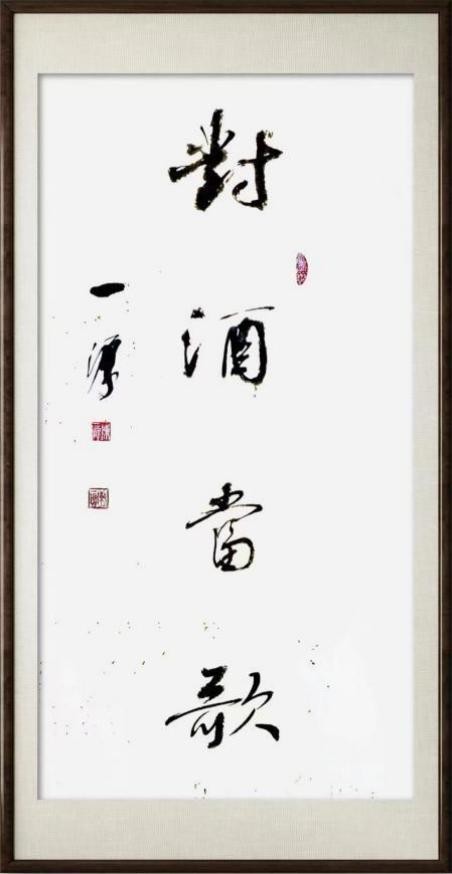 對酒當歌
一